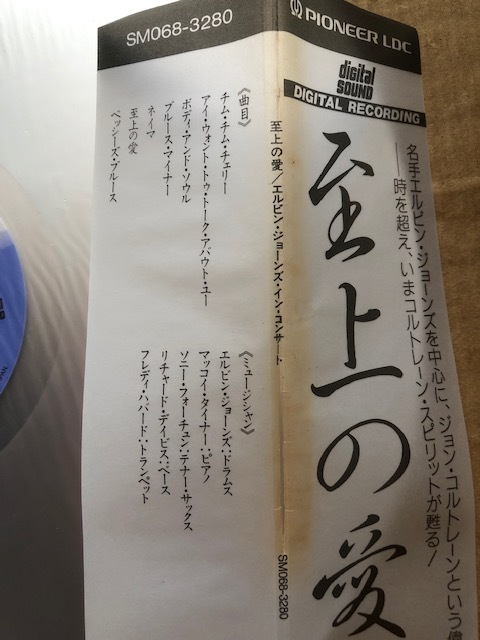 PIONEER LDC
digital
SOUND
DIGITAL RECORDING
名手エルビン・ジョーンズを中心に、ジョン・コルトレーンという偉
──時を超え、いまコルトレーン・スピリットが甦る!
至上の愛
至上の愛/エルビン・ジョーンズ・イン・コンサート
SM068-3280
SM068-3280
《曲目》
チム・チム・チェリー
アイ・ウォント・トゥ・トーク・アバウト・ユー
ボディ・アンド・ソウル
ブルース・マイナー
ネイマ
至上の愛
ベッシーズ・ブルース
《ミュージシャン》
エルビン・ジョーンズ:ドラムス
マッコイ・タイナー:ピアノ
ソニー・フォーチュン:テナー・サックス
リチャード・デイビス:ベース
フレディ・ハバード:トランペット